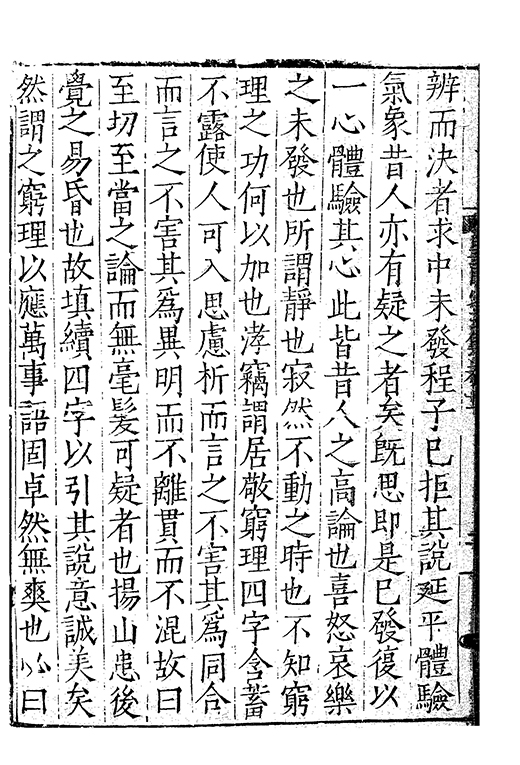 辨而決者求中未發程子已拒其說延平體驗
氣象昔人亦有疑之者矣旣思即是已發復以
一心體驗其心此皆昔人之高論也喜怒哀樂
之未發也所謂靜也寂然不動之時也不知窮
理之功何以加也淳竊謂居敬窮理四字含蓄
不露使人可入思慮析而言之不害其爲同合
而言之不害其爲異明而不離貫而不混故曰
至切至當之論而無毫髮可疑者也揚山患後
覺之易昏也故填續四字以引其說意誠美矣
然謂之窮理以應萬事語固卓然無爽也必曰